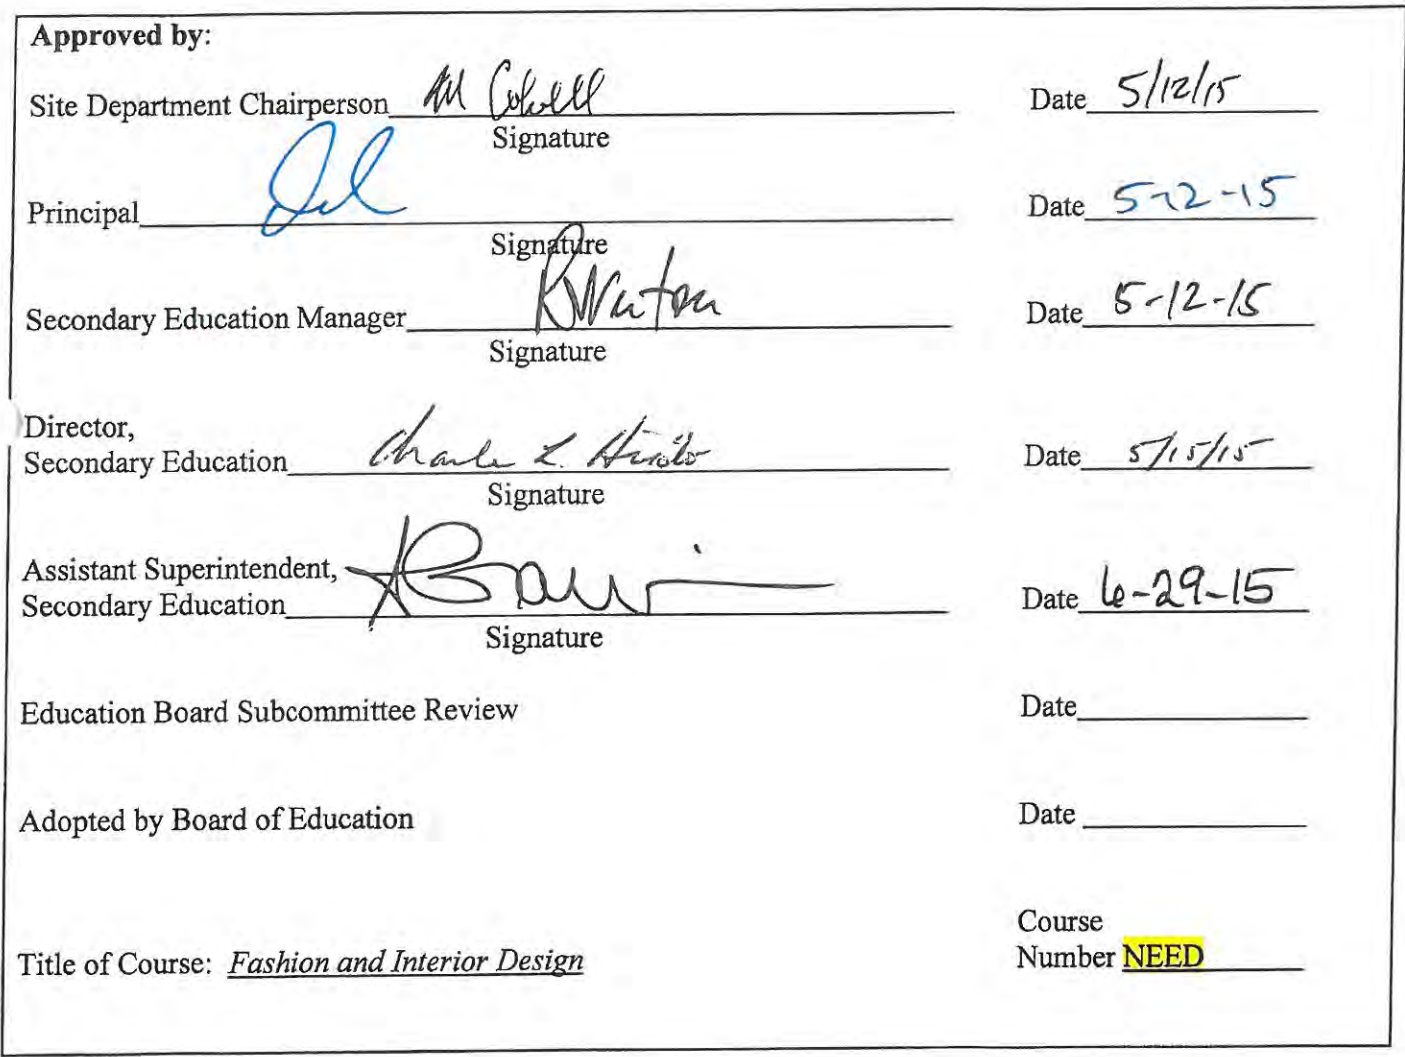 Approved by:
Site Department Chairperson Date 5/12/15
Signature
Principal Date 5-12-15
Signature
Secondary Education Manager Date 5-12-15
Signature
Director,
Secondary Education Date 5/15/15
Signature
Assistant Superintendent,
Secondary Education Date 6-29-15
Signature
Education Board Subcommittee Review Date
Adopted by Board of Education Date
Course
Title of Course: Fashion and Interior Design Number NEED